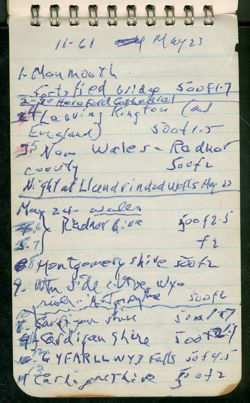 11-61 May 23
1- Monmouth
fortified bridge 500 f1.7
2-3- Hereford Cathedral
4 Leaving Kington (and
England) 500 f1.5
5 Now Wales - Radnor
county 500 f2
Night at Llandrindod Wells May 23
May 24- Wales
6 Radnorshire 500 f2.5
7 f2
8 Montgomeryshire 500 f2
9. Mtn side above Wye
river - 500 f2
Cardigan shire
Cardigan Shire 500
GYFARLLWYD Falls 500 f4.5
Cardiganshire 500 f2